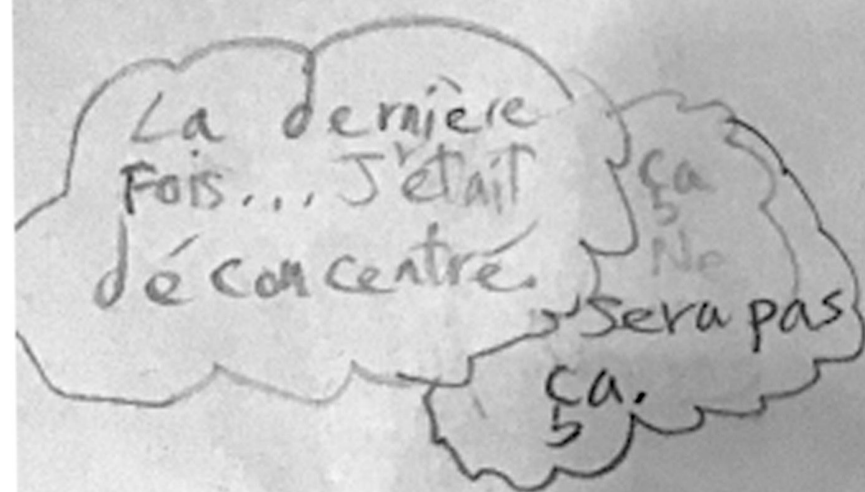 La dernière
Fois... J'était
déconcentré.
Ça
Ne
sera pas
ça.